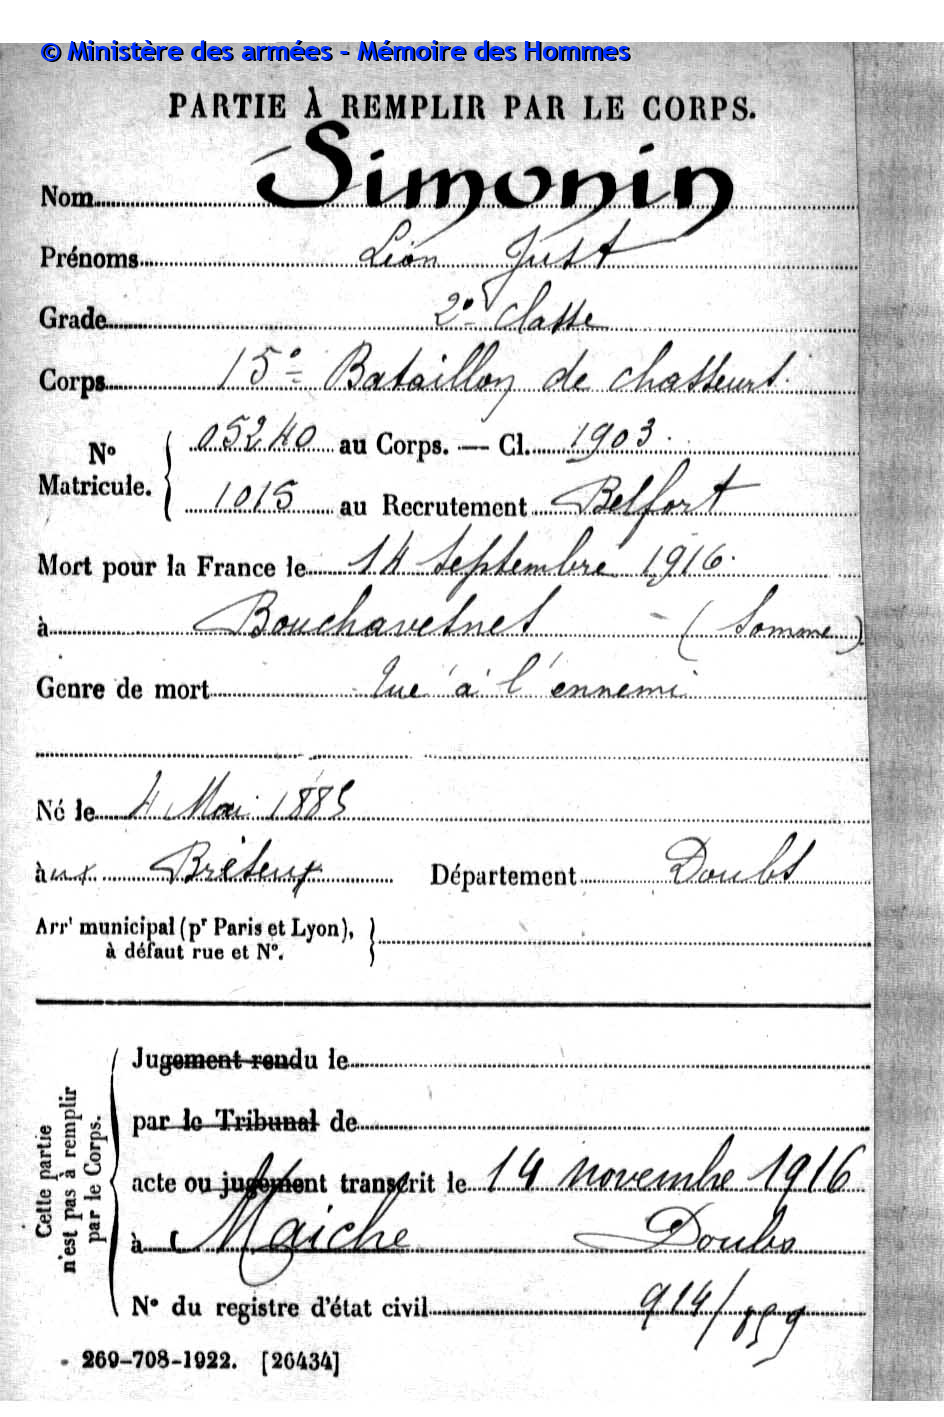 © Ministère des armées - Mémoire des Hommes
PARTIE À REMPLIR PAR LE CORPS.
Nom Simonin
Prénoms Léon Just
Grade 2e classe
Corps 15e Bataillon de chasseurs.
No Matricule. { 05240 au Corps. — Cl. 1903.
1015 au Recrutement Belfort
Mort pour la France le 14 septembre 1916.
à Bouchavesnes - (Somme)
Genre de mort tué à l'ennemi
Né le 4 Mai 1883
àux Bréseux Département Doubs
Arrt municipal (pr Paris et Lyon), }
à défaut rue et No.
Cette partie
n'est pas à remplir
par le Corps.
Jugement rendu le
par le Tribunal de
acte ou jugement transcrit le 14 novembre 1916
à Maîche Doubs
No du registre d'état civil 914/859
269-708-1922. [26434]